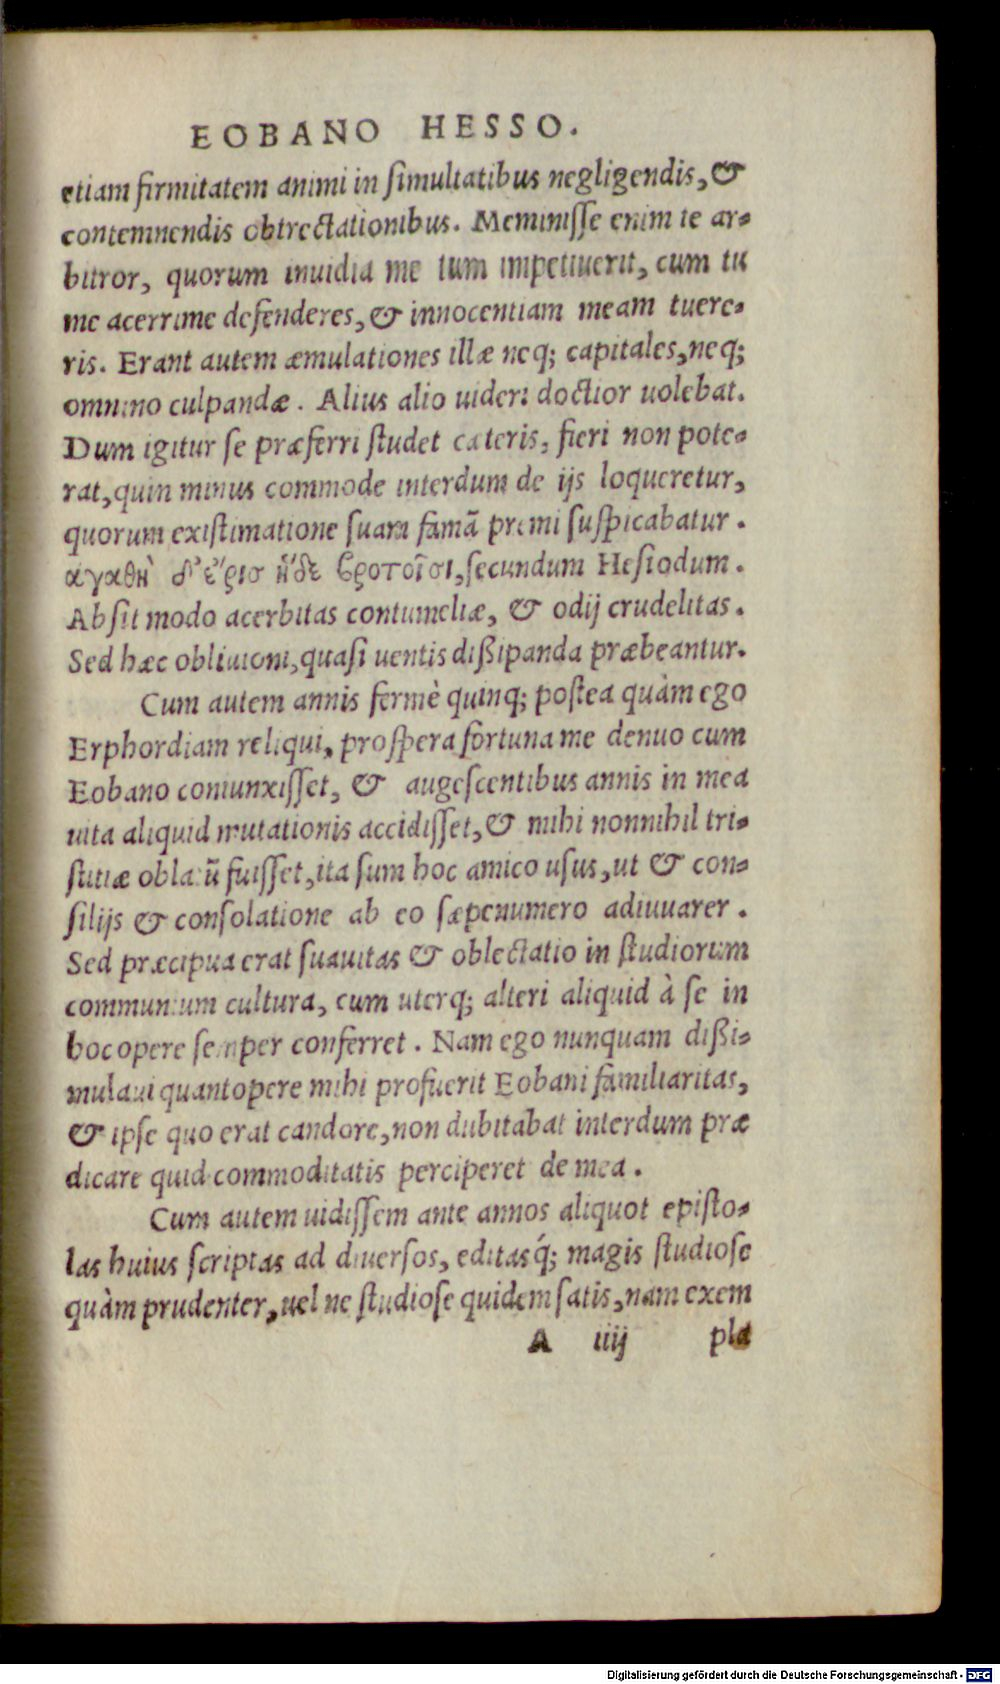 EOBANO HESSO.
etiam firmitatem animi in simultatibus negligendis, &
contemnendis obtrectationibus. Meminisse enim te ar-
bitror, quorum inuidia me tum impetiuerit, cum tu
me acerrime defenderes, & innocentiam meam tuere-
ris. Erant autem æmulationes illæ neq; capitales, neq;
omnino culpandæ. Alius alio uideri doctior uolebat.
Dum igitur se præferri studet cæteris, fieri non pote-
rat, quin minus commode interdum de ijs loqueretur,
quorum existimatione suam famā premi suspicabatur.
αγαθὴ δ' ἔρις ἥδε βροτοῖσι, secundum Hesiodum.
Absit modo acerbitas contumeliæ, & odij crudelitas.
Sed hæc obliuioni, quasi uentis dißipanda præbeantur.
Cum autem annis fermè quinq; postea quàm ego
Erphordiam reliqui, prospera fortuna me denuo cum
Eobano coniunxisset, & augescentibus annis in mea
uita aliquid mutationis accidisset, & mihi nonnihil tri-
stitiæ oblatū fuisset, ita sum hoc amico usus, ut & con-
silijs & consolatione ab eo sæpenumero adiuuarer.
Sed præcipua erat suauitas & oblectatio in studiorum
communium cultura, cum uterq; alteri aliquid à se in
hoc opere semper conferret. Nam ego nunquam dißi-
mulaui quantopere mihi profuerit Eobani familiaritas,
& ipse quo erat candore, non dubitabat interdum præ
dicare quid commoditatis perciperet de mea.
Cum autem uidissem ante annos aliquot episto-
las huius scriptas ad diuersos, editasq́; magis studiose
quàm prudenter, uel ne studiose quidem satis, nam exem
A iiij pla
Digitalisierung gefördert durch die Deutsche Forschungsgemeinschaft - DFG